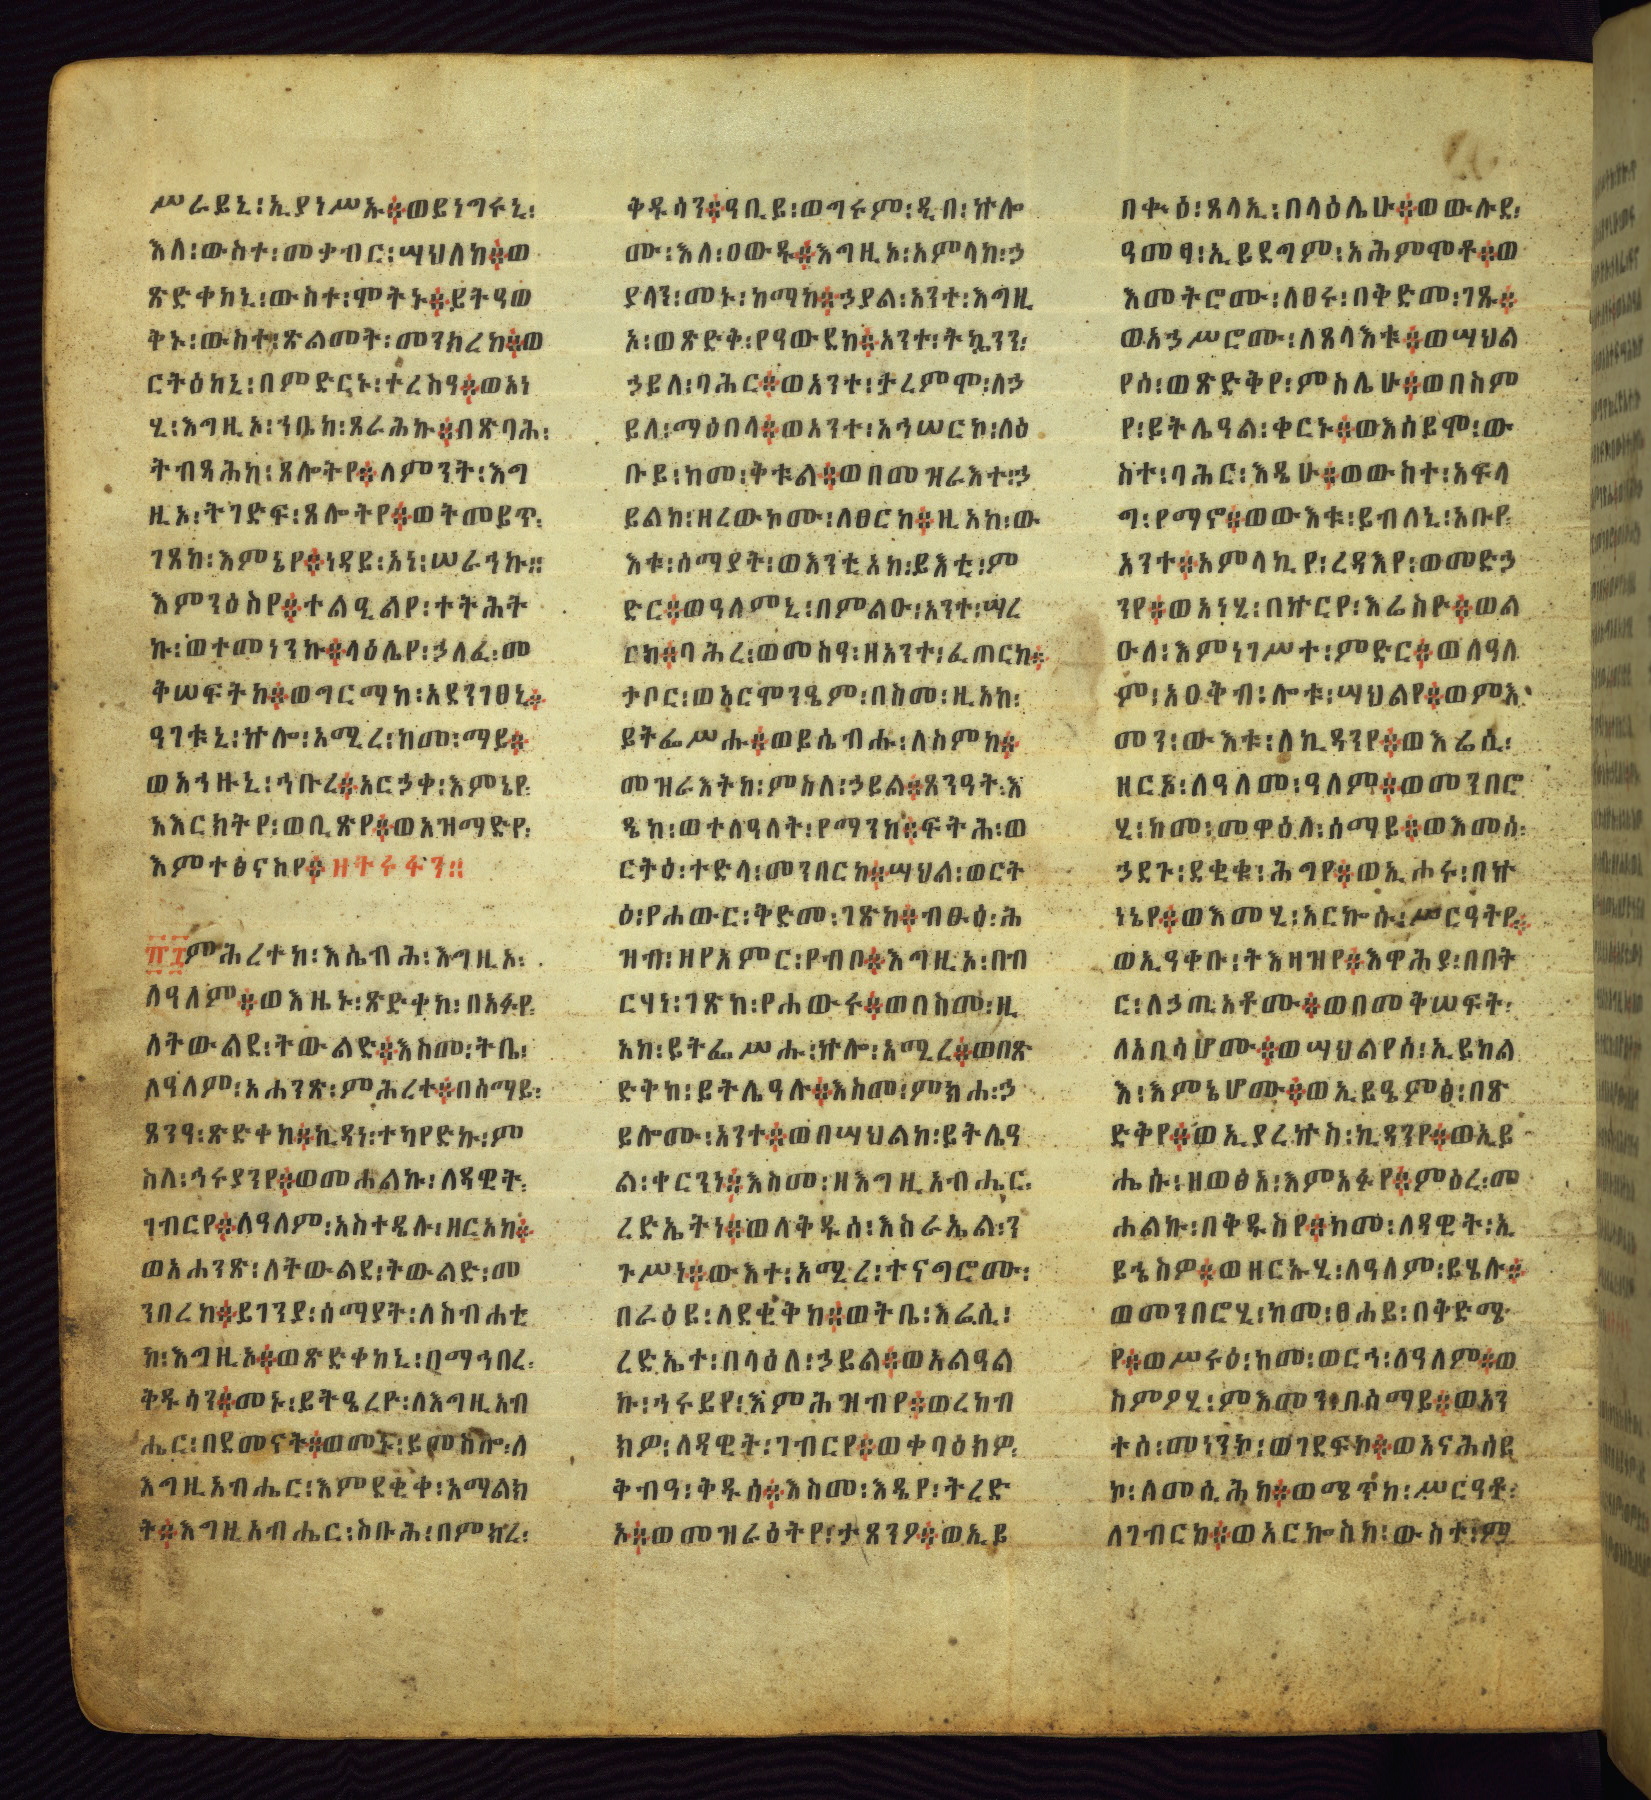 ሥራይኒ፡ኢያነሥኡ፨ወይነግሩኒ፡
እለ፡ውስተ፡መቃብር፡ሣህለከ፨ወ
ጽድቀከኒ፡ውስተ፡ሞትኑ፨ይትዓወ
ቅኑ፡ውስተ፡ጽልመት፡መንክረከ፨ወ
ርትዕከኒ፡በምድርኑ፡ተረስዓ፨ወአነ
ሂ፡እግዚኦ፡ኀቤከ፡ጸራሕኩ፨በጽባሕ፡
ትብጻሕከ፡ጸሎትየ፨ለምንት፡እግ
ዚኦ፡ትገድፍ፡ጸሎትየ፨ወትመይጥ፡
ገጸከ፡እምኔየ፨ነዳይ፡አነ፡ሠራኅኩ።
እምንዕስየ፨ተልዒልየ፡ተትሕት
ኩ፡ወተመነንኩ፨ላዕሌየ፡ኃለፈ፡መ
ቅሠፍትከ፨ወግርማከ፡አደንገፀኒ፨
ዓገቱኒ፡ኵሎ፡አሚረ፡ከመ፡ማይ፨
ወአኀዙኒ፡ኅቡረ፨አርኃቀ፡እምኔየ፡
አእርክትየ፡ወቢጽየ፨ወአዝማድየ፡
እምተፅናስየ፨ዘትሩፋን።
፹፰ምሕረተከ፡እሴብሕ፡እግዚኦ፡
ለዓለም፨ወእዜኑ፡ጽድቀከ፡በአፉየ፡
ለትውልደ፡ትውልድ፨እስመ፡ትቤ፡
ለዓለም፡አሐንጽ፡ምሕረተ፨በሰማይ፡
ጸንዓ፡ጽድቀከ፨ኪዳነ፡ተካየድኩ፡ም
ስለ፡ኅሩያንየ፨ወመሐልኩ፡ለዳዊት፡
ገብርየ፨ለዓለም፡አስተዴሉ፡ዘርአከ፨
ወአሐንጽ፡ለትውልደ፡ትውልድ፡መ
ንበረከ፨ይገንያ፡ሰማያት፡ለስብሐቲ
ከ፡እግዚኦ፨ወጽድቀከኒ፡በማኅበረ፡
ቅዱሳን፨መኑ፡ይትዔረዮ፡ለእግዚአብ
ሔር፡በደመናት፨ወመኑ፡ይመስሎ፡ለ
እግዚአብሔር፡እምደቂቀ፡አማልክ
ት፨እግዚአብሔር፡ስቡሕ፡በምክረ፡
ቅዱሳን፨ዓቢይ፡ወግሩም፡ዲበ፡ኵሎ
ሙ፡እለ፡ዐውዱ፨እግዚኦ፡አምላከ፡ኃ
ያላን፡መኑ፡ከማከ፨ኃያል፡አንተ፡እግዚ
ኦ፡ወጽድቅ፡የዓውደከ፨አንተ፡ትኴንን፡
ኃይለ፡ባሕር፨ወአንተ፡ታረምሞ፡ለኃ
ይለ፡ማዕበላ፨ወአንተ፡አኅሠርኮ፡ለዕ
ቡይ፡ከመ፡ቅቱል፨ወበመዝራእተ፡ኃ
ይልከ፡ዘረውኮሙ፡ለፀርከ፨ዚአከ፡ው
እቱ፡ሰማያት፡ወእንቲአከ፡ይእቲ፡ም
ድር፨ወዓለምኒ፡በምልዑ፡አንተ፡ሣረ
ርከ፨ባሕረ፡ወመስዓ፡ዘአንተ፡ፈጠርከ፨
ታቦር፡ወአርሞንዔም፡በስመ፡ዚአከ፡
ይትፌሥሑ፨ወይሴብሑ፡ለስምከ፨
መዝራእትከ፡ምስለ፡ኃይል፨ጸንዓት፡እ
ዴከ፡ወተለዓለት፡የማንከ፨ፍትሕ፡ወ
ርትዕ፡ተድላ፡መንበርከ፨ሣህል፡ወርት
ዕ፡የሐውር፡ቅድመ፡ገጽከ፨ብፁዕ፡ሕ
ዝብ፡ዘየአምር፡የብቦ፨እግዚኦ፡በብ
ርሃነ፡ገጽከ፡የሐውሩ፨ወበስመ፡ዚ
አከ፡ይትፌሥሑ፡ኵሎ፡አሚረ፨ወበጽ
ድቅከ፡ይትሌዓሉ፨እስመ፡ምክሐ፡ኃ
ይሎሙ፡አንተ፨ወበሣህልከ፡ይትሌዓ
ል፡ቀርንነ፨እስመ፡ዘእግዚአብሔር፡
ረድኤትነ፨ወለቅዱሰ፡እስራኤል፡ን
ጉሥነ፨ውእተ፡አሚረ፡ተናግሮሙ፡
በራዕይ፡ለደቂቅከ፨ወትቤ፡እሬሲ፡
ረድኤተ፡በላዕለ፡ኃይል፨ወአልዓል
ኩ፡ኅሩይየ፡እምሕዝብየ፨ወረከብ
ክዎ፡ለዳዊት፡ገብርየ፨ወቀባዕክዎ፡
ቅብዓ፡ቅዱሰ፨እስመ፡እዴየ፡ትረድ
ኦ፨ወመዝራዕትየ፡ታጸንዖ፨ወኢይ
በቍዕ፡ጸላኢ፡በላዕሌሁ፨ወውሉደ፡
ዓመፃ፡ኢይደግም፡አሕምሞቶ፨ወ
እመትሮሙ፡ለፀሩ፡በቅድመ፡ገጹ፨
ወአኃሥሮሙ፡ለጸላእቱ፨ወሣህል
የሰ፡ወጽድቅየ፡ምስሌሁ፨ወበስም
የ፡ይትሌዓል፡ቀርኑ፨ወእሰይሞ፡ው
ስተ፡ባሕር፡እዴሁ፨ወውስተ፡አፍላ
ግ፡የማኖ፨ወውእቱ፡ይብለኒ፡አቡየ፡
አንተ፨አምላኪየ፡ረዳእየ፡ወመድኃ
ንየ፨ወአነሂ፡በኵርየ፡እሬስዮ፨ወል
ዑለ፡እምነገሥተ፡ምድር፨ወለዓለ
ም፡አዐቅብ፡ሎቱ፡ሣህልየ፨ወምእ
መን፡ውእቱ፡ለኪዳንየ፨ወእሬሲ፡
ዘርኦ፡ለዓለመ፡ዓለም፨ወመንበሮ
ሂ፡ከመ፡መዋዕለ፡ሰማይ፨ወእመሰ፡
ኃደጉ፡ደቂቁ፡ሕግየ፨ወኢሖሩ፡በኵ
ነኔየ፨ወእመሂ፡አርኰሱ፡ሥርዓትየ፨
ወኢዓቀቡ፡ትእዛዝየ፨እዋሕያ፡በበት
ር፡ለኃጢአቶሙ፨ወበመቅሠፍት፡
ለአበሳሆሙ፨ወሣህልየሰ፡ኢይክል
እ፡እምኔሆሙ፨ወኢይዔምፅ፡በጽ
ድቅየ፨ወኢያረኵስ፡ኪዳንየ፨ወኢይ
ሔሱ፡ዘወፅአ፡እምአፉየ፨ምዕረ፡መ
ሐልኩ፡በቅዱስየ፨ከመ፡ለዳዊት፡ኢ
ይኄስዎ፨ወዘርኡሂ፡ለዓለም፡ይሄሉ፨
ወመንበሮሂ፡ከመ፡ፀሐይ፡በቅድሜ
የ፨ወሥሩዕ፡ከመ፡ወርኅ፡ለዓለም፨ወ
ስምዖሂ፡ምእመን፡በሰማይ፨ወአን
ተሰ፡መነንኮ፡ወገደፍኮ፨ወአናሕሰይ
ኮ፡ለመሲሕከ፨ወሜጥከ፡ሥርዓቶ፡
ለገብርከ፨ወአርኰስከ፡ውስተ፡ም